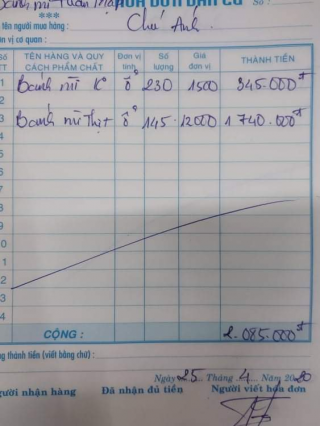 Bánh mì Tuấn Mập
HÓA ĐƠN BÁN LẺ
***
Số :
tên người mua hàng : Chú Anh
n vị cơ quan :
STT TÊN HÀNG VÀ QUY CÁCH PHẨM CHẤT Đơn vị tính Số lượng Giá đơn vị THÀNH TIỀN
1 Bánh mì Kº ổ 230 1500 345.000đ
3 Bánh mì Thịt ổ 145 12000 1 740.000đ
8
9
0
1
2
3
4
CỘNG : 2.085.000đ
ng thành tiền (viết bằng chữ) :
Ngày 25 Tháng 4 Năm 2020
gười nhận hàng Đã nhận đủ tiền Người viết hóa đơn